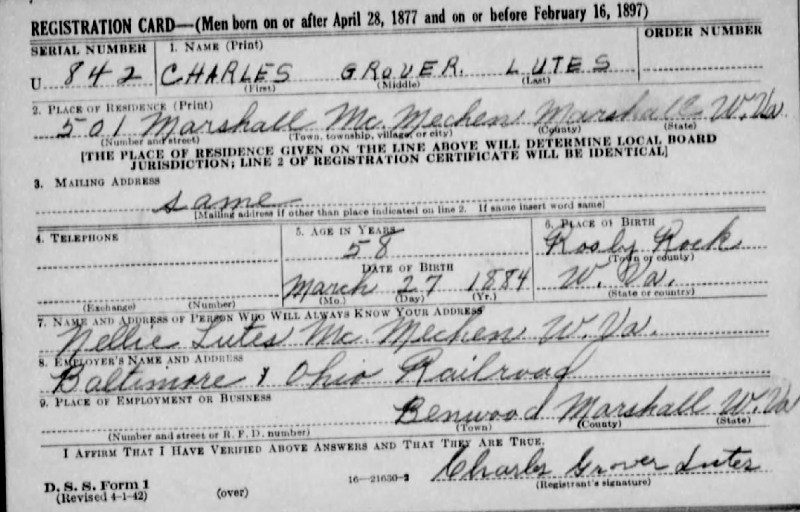 REGISTRATION CARD—(Men born on or after April 28, 1877 and on or before February 16, 1897)
SERIAL NUMBER 1. NAME (Print) ORDER NUMBER
U 842 CHARLES GROVER. LUTES
(First) (Middle) (Last)
2. PLACE OF RESIDENCE (Print)
501 Marshall Mc Mechen Marshall W. Va.
(Number and street) (Town, township, village, or city) (County) (State)
[THE PLACE OF RESIDENCE GIVEN ON THE LINE ABOVE WILL DETERMINE LOCAL BOARD
JURISDICTION; LINE 2 OF REGISTRATION CERTIFICATE WILL BE IDENTICAL]
3. MAILING ADDRESS
same
[Mailing address if other than place indicated on line 2. If same insert word same]
4. TELEPHONE 5. AGE IN YEARS 6. PLACE OF BIRTH
58 Rosby Rock
(Town or county)
DATE OF BIRTH
March 27 1884 W. Va.
(Exchange) (Number) (Mo.) (Day) (Yr.) (State or country)
7. NAME AND ADDRESS OF PERSON WHO WILL ALWAYS KNOW YOUR ADDRESS
Nellie Lutes Mc Mechen W. Va.
8. EMPLOYER'S NAME AND ADDRESS
Baltimore & Ohio Railroad
9. PLACE OF EMPLOYMENT OR BUSINESS
Benwood Marshall W. Va
(Number and street or R. F. D. number) (Town) (County) (State)
I AFFIRM THAT I HAVE VERIFIED ABOVE ANSWERS AND THAT THEY ARE TRUE.
Charles Grover Lutes
D. S. S. Form 1 16—21630-2 (Registrant's signature)
(Revised 4-1-42) (over)